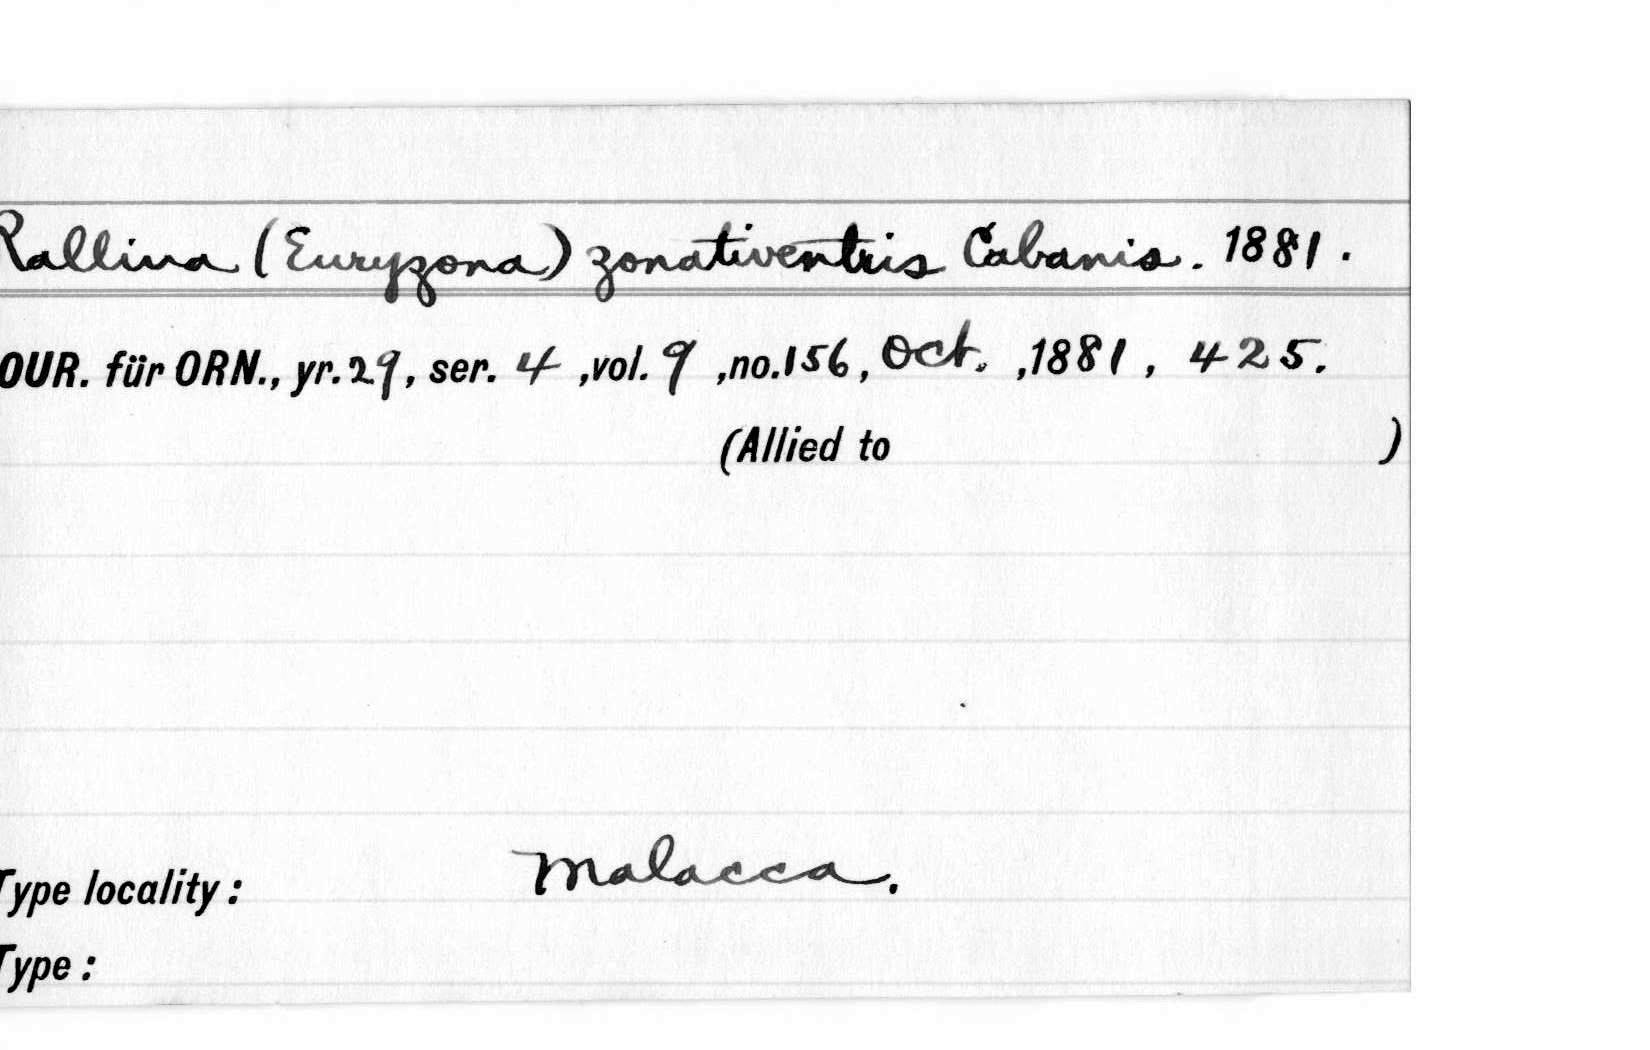 Rallina (Euryzona) zonativentris Cabanis. 1881.
OUR. für ORN., yr.29, ser. 4 ,vol. 9 ,no.156, Oct. ,1881, 425.
(Allied to )
Type locality: Malacca.
Type: